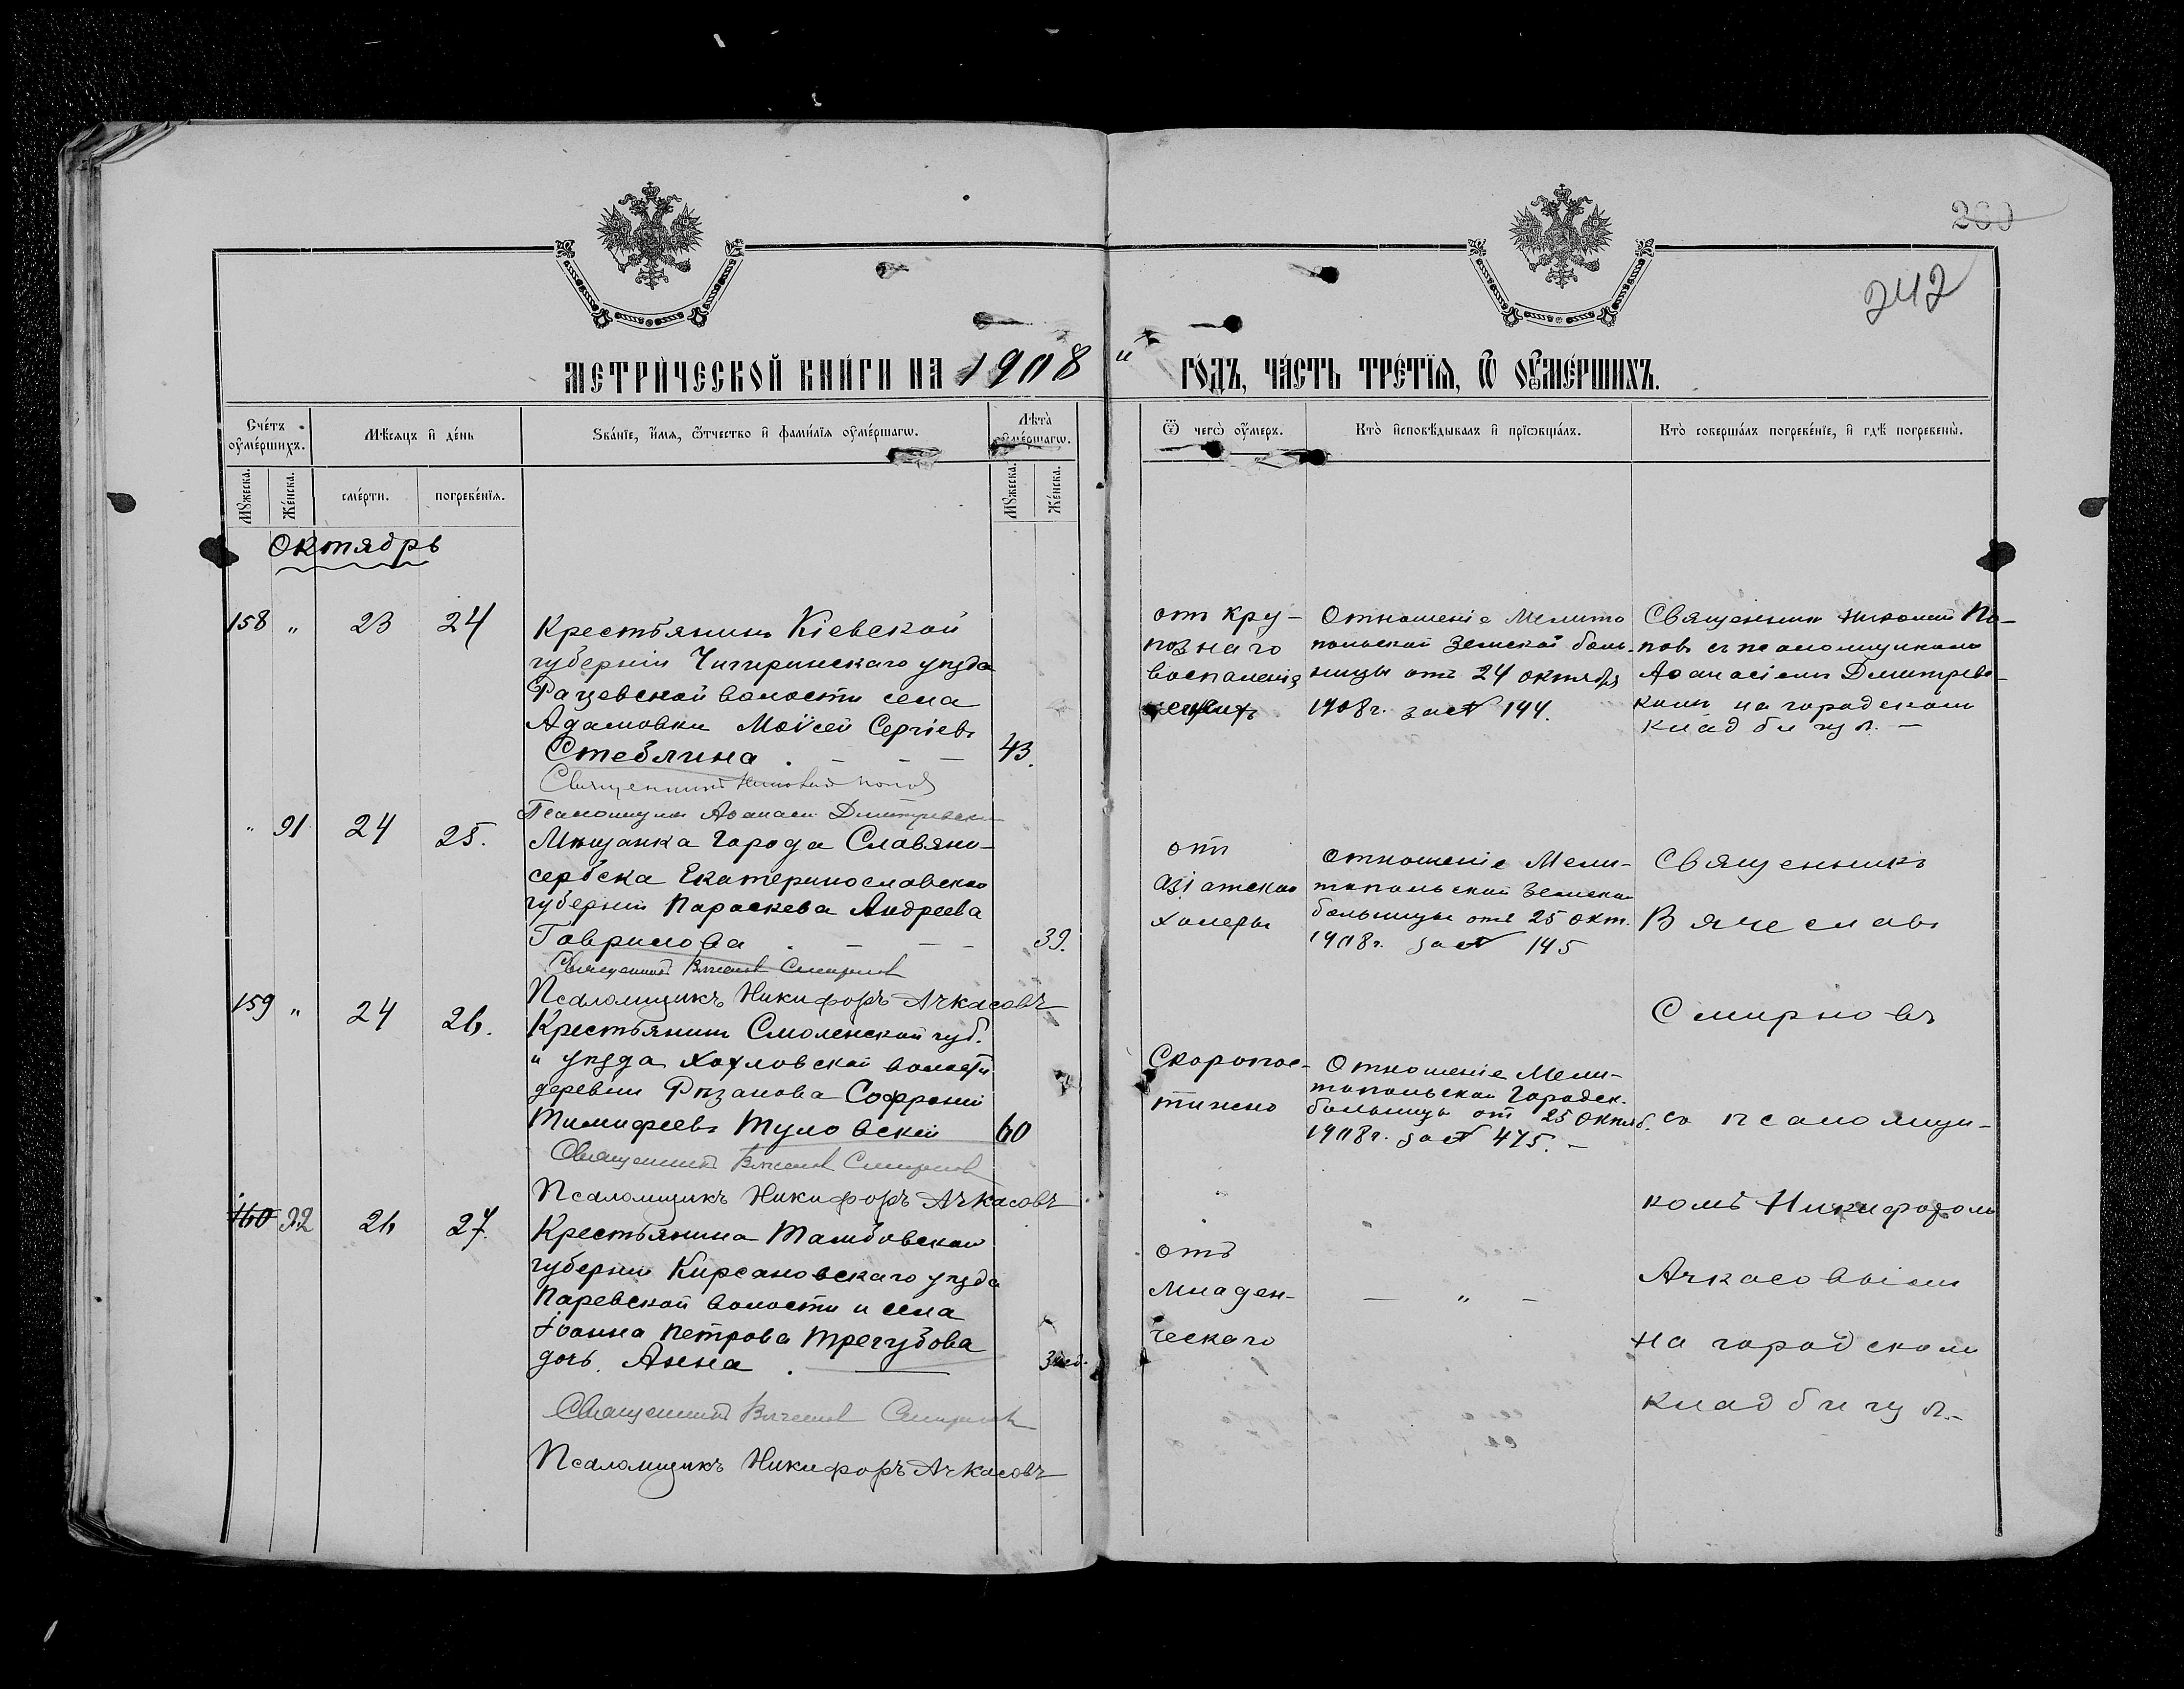 200
242
МЕТРИ́ЧЕСКОЙ КНИ́ГИ НА 1908 й ГО́ДЪ, ЧА́СТЬ ТРЕ́ТЇѦ, Ѿ ОУ҆МЕ́РШИХЪ.
Сче́тъ оу҆ме́ршихъ.
Мѣ́сѧцъ и҆ де́нь
Ѕва́нїе, и҆́мѧ, ѻ҆́тчество и҆ фами́лїѧ оу҆ме́ршагѡ.
Лѣ́та оу҆ме́ршагѡ.
Ѿ чегѡ̀ оу҆́меръ.
Кто̀ и҆сповѣ́дывалъ и҆ прїѡбща́лъ.
Кто̀ соверша́лъ погребе́нїе, и҆ гдѣ̀ погребены̀.
Мꙋ́жеска.
Же́нска.
сме́рти.
погребе́нїѧ.
Мꙋ́жеска.
Же́нска.
Октябрь
158 " 23 24
Крестьянинъ Кіевской
губерніи Чигиринскаго уѣзда
Рацевской волости села
Адамовки Моѵсей Сергіевъ
Стеблина . — — — 43.
Священникъ Николай Поповъ
Псаломщикъ Аѳанасій Дмитревскій
от кру-
позного
воспаленія
Отношеніе Мелито
польской Земской боль-
ницы отъ 24 октября
1908 г. за № 144.
Священникъ Николай По-
повъ съ псаломщикомъ
Аѳанасіемъ Дмитрев-
кимъ на городскомъ
кладбищѣ. —
" 91 24 25.
Мѣщанка города Славяно-
сербска Екатеринославской
губерніи Параскева Андреева
Гаврилова . — — — 39.
Священникъ Вячеславъ Смирновъ
Псаломщикъ Никифоръ Ачкасовъ
отъ
азіатской
холеры
Отношеніе Мели-
топольской Земской
больницы отъ 25 окт.
1908 г. за № 145
Священникъ
Вячеславъ
Смирновъ
159 " 24 26.
Крестьянинъ Смоленской губ.
и уѣзда Хохловской волости
деревни Рязанова Софроній
Тимофеевъ Туловскій 60
Священникъ Вячеславъ Смирновъ
Псаломщикъ Никифоръ Ачкасовъ
Скоропос-
тижно
Отношеніе Мели-
топольской Городск.
больницы отъ 25 октяб.
1908 г. за № 475. —
съ псаломщи-
комъ Никифоромъ
160 92 26 27.
Крестьянина Тамбовской
губерніи Кирсановскаго уѣзда
Паревской волости и села
Іоанна Петрова Трегубова
дочь Анна . — 3 нед.
Священникъ Вячеславъ Смирновъ
Псаломщикъ Никифоръ Ачкасовъ
отъ
младен-
ческаго
— " —
Ачкасовымъ
на городскомъ
кладбищѣ. —